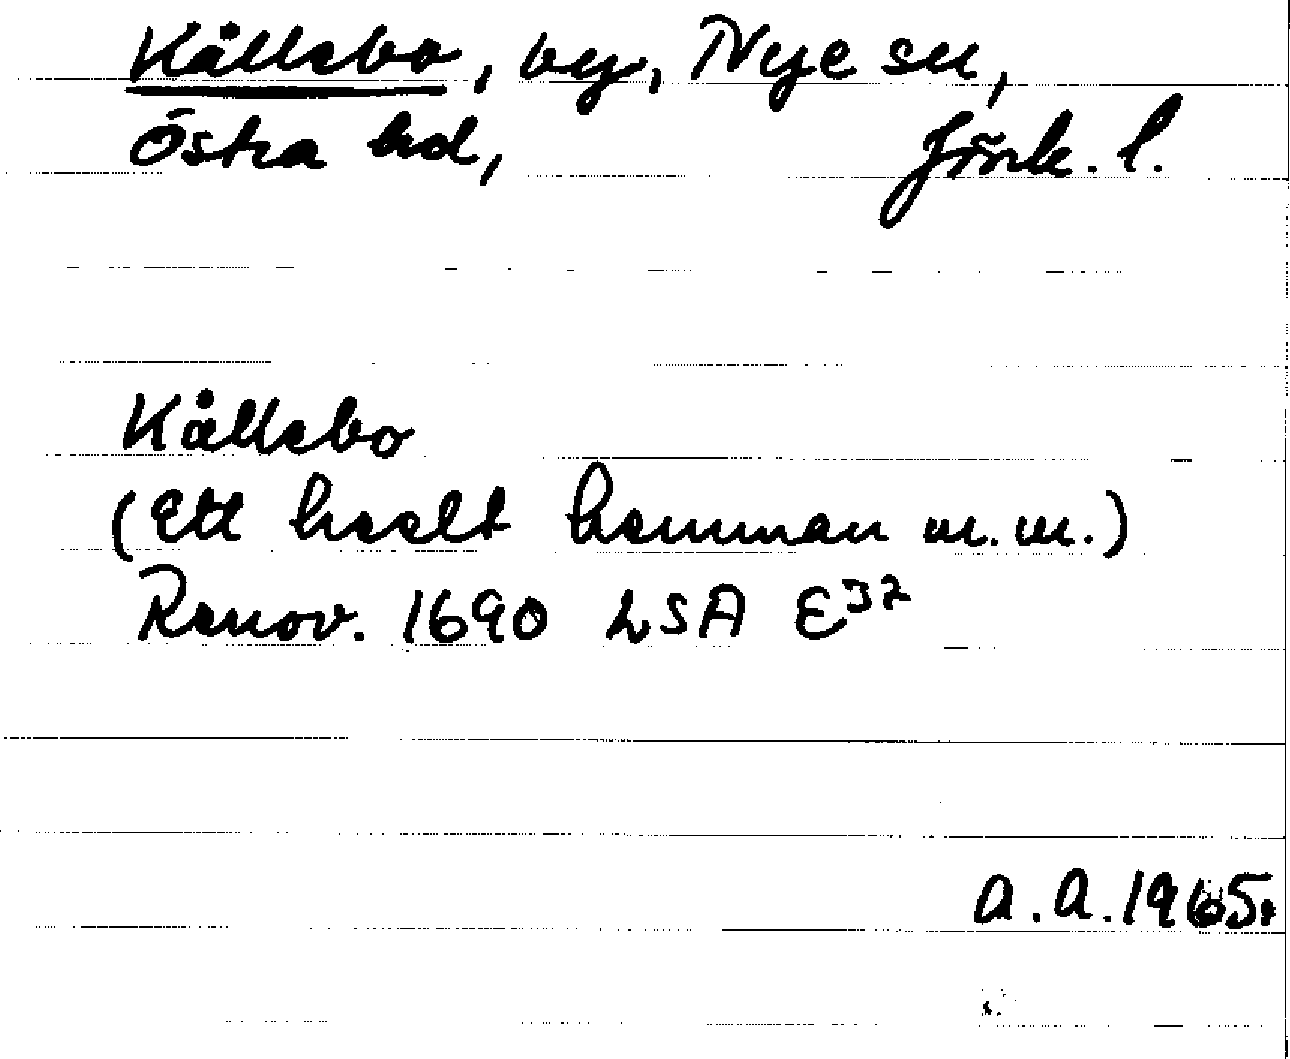 Kållebo, by, Nye sn,
Östra hd, Jönk. l.
Kållebo
(Ett heelt hemman m.m.)
Renov. 1690 LSA E³²
A.A. 1965.